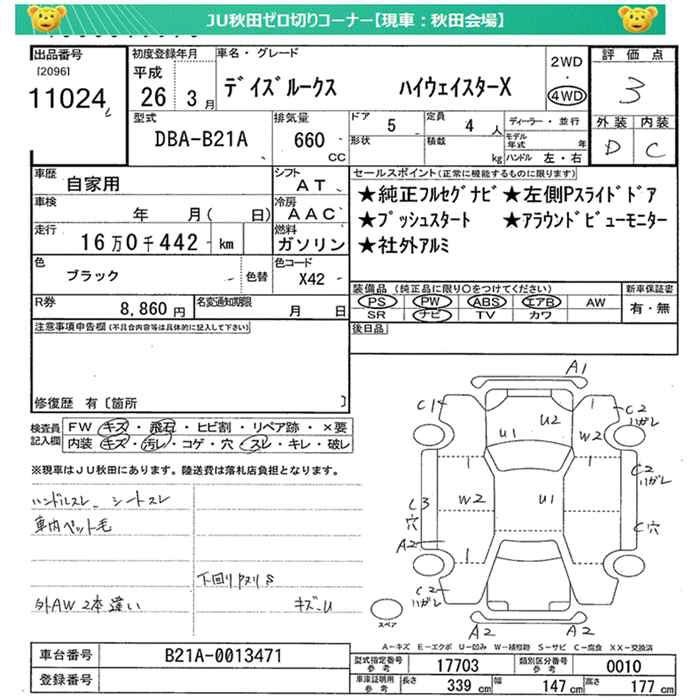 JU秋田ゼロ切りコーナー【現車：秋田会場】
出品番号
[2096]
11024
初度登録年月
平成
26年 3月
車名・グレード
デイズルークス ハイウェイスターX
2WD
・
4WD
評価点
3
外装 内装
D C
型式
DBA-B21A
排気量
660
CC
ドア
5
定員
4
人
形状
積載
kg
ディーラー・並行
モデル年式 年
ハンドル 左・右
車歴
自家用
シフト
AT
車検
年 月( 日)
冷房
AAC
走行
16万0千442 km
燃料
ガソリン
色
ブラック
色替
色コード
X42
R券
8,860円
名変通知期限
月 日
セールスポイント(正常に機能するものに限ります)
★純正フルセグナビ ★左側Pスライドドア
★プッシュスタート ★アラウンドビューモニター
★社外アルミ
装備品 (純正品に限り○をつけてください)
PS PW ABS エアB AW
SR ナビ TV カワ
新車保証書
有・無
後日品
注意事項申告欄(不具合内容等は具体的に記入して下さい)
修復歴 有 [箇所 ]
検査員記入欄
FW キズ・飛石・ヒビ割・リペア跡・×要
内装 キズ・汚レ・コゲ・穴・スレ・キレ・破レ
※現車はJU秋田にあります。陸送費は落札店負担となります。
ハンドルスレ、シートスレ
車内ペット毛
下回りサビS
外AW2本違い
キズ-U
A1
C1
U2
U1
C2
ハガレ
W2
C2
ハガレ
C3
穴
W2
U1
C穴
A2
C2
ハガレ
A2
A2
スペア
A-キズ E-エクボ U-凹み W-補修跡 S-サビ C-腐食 XX-交換済
車台番号
B21A-0013471
登録番号
型式指定番号
参考
17703
類別区分番号
参考
0010
車庫証明用
参考
長さ
339 cm
幅
147 cm
高さ
177 cm